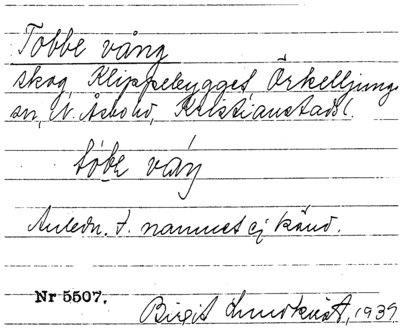 Tobbe vång
skog, Klippebygget, Örkelljunga
sn, N. Åsbo hd, Kristianstads l.
tòbe váŋ
Anledn. t. namnet ej känd.
Nr 5507.
Birgit Lundkvist, 1939